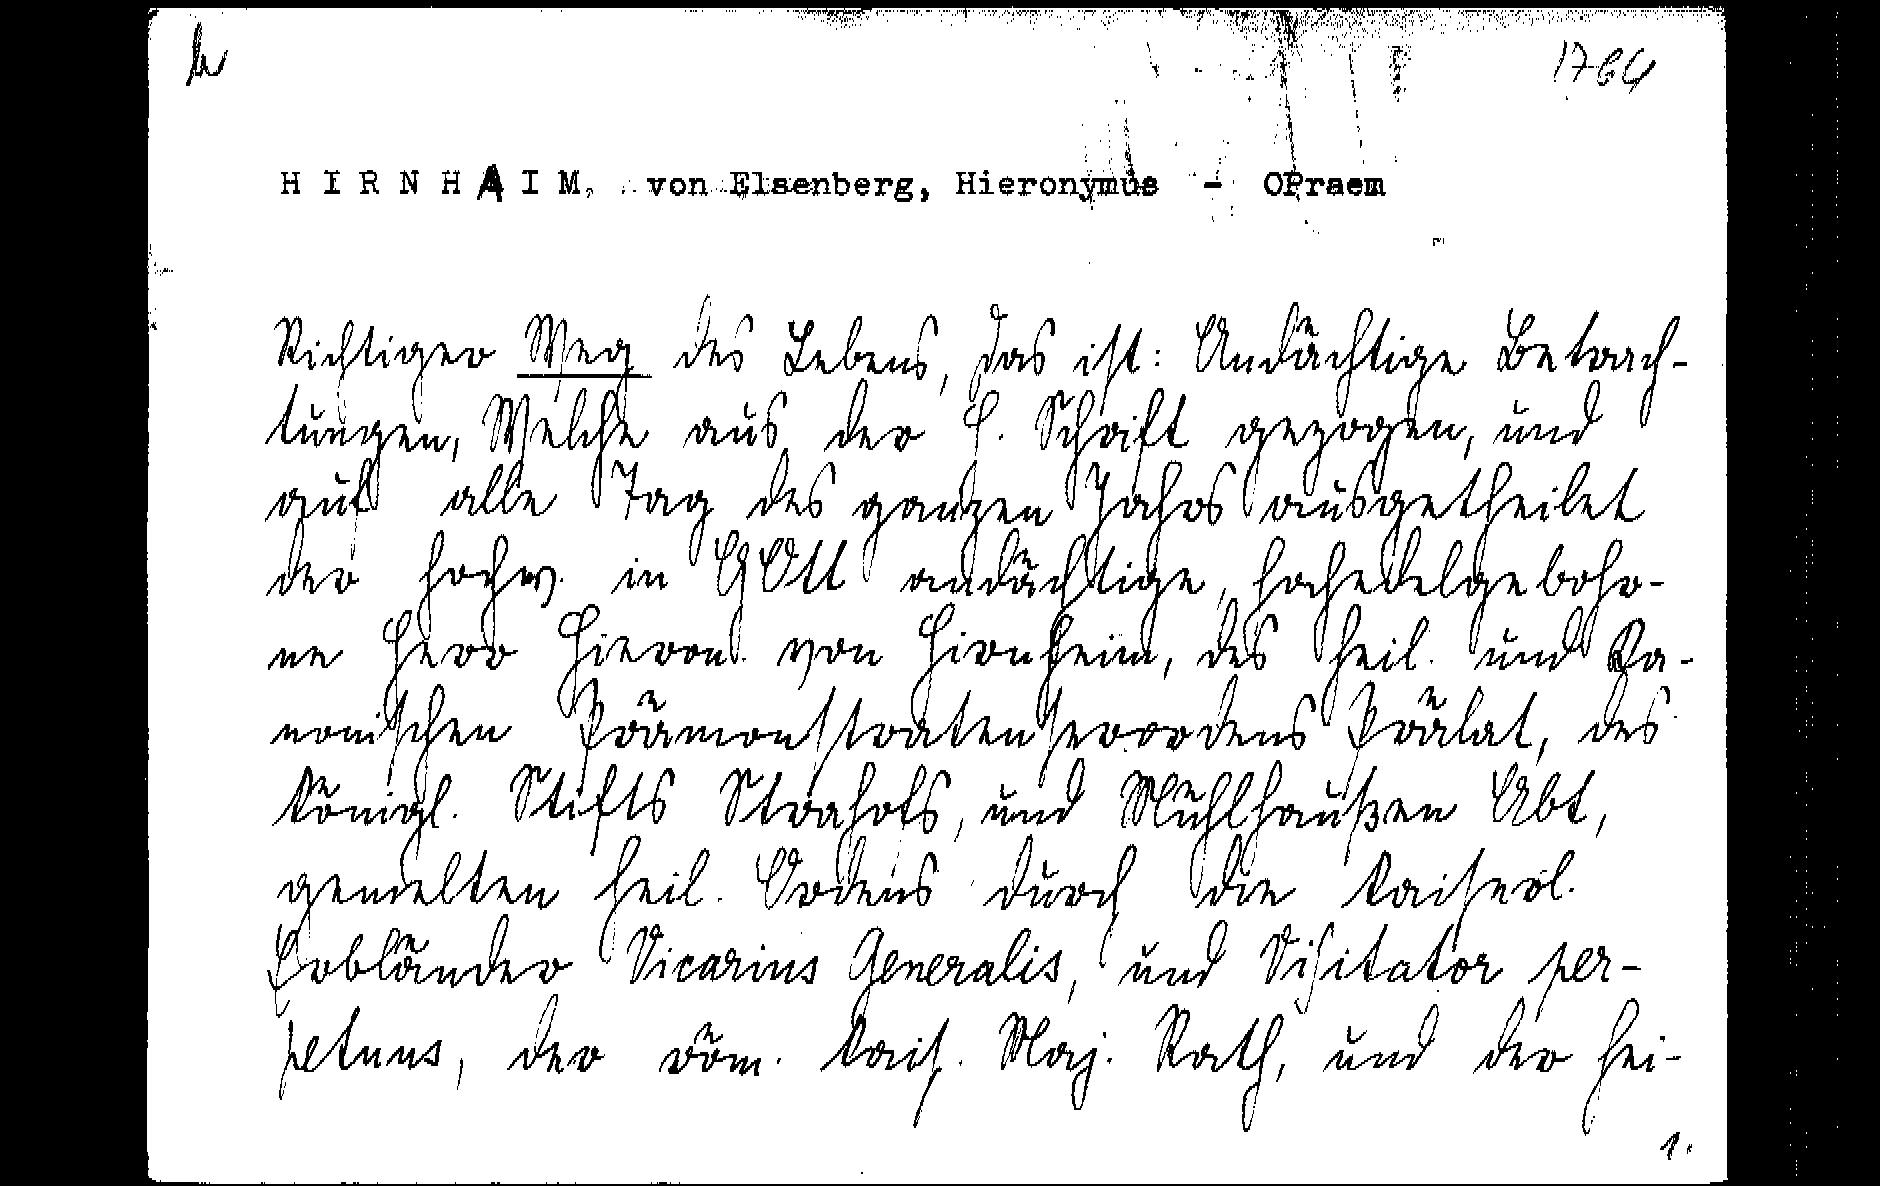 1764
HIRNHAIM, von Elsenberg, Hieronymus - OPraem
Richtiger Weg des Lebens, das ist: Andächtige Betrach-
tungen, Welche aus der H. Schrift gezogen, und
auf alle Tag des ganzen Jahrs ausgetheilet
der hochw. in GOtt andächtige, hochedelgebohr-
ne Herr Hieron. von Hirnheim, des heil. und Ka-
nonischen Prämonstratenserordens Prälat, des
königl. Stifts Strahofs, und Mühlhaußen Abt,
gemelten heil. Ordens durch die kaiserl.
Erbländer Vicarius Generalis, und Visitator per-
petuus, der röm. kais. Maj. Rath, und der hei-
1.